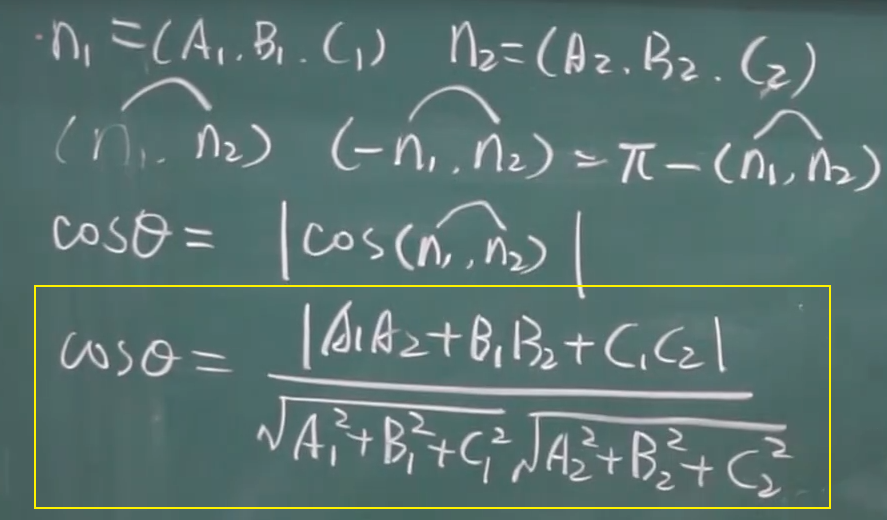 n₁=(A₁.B₁.C₁) n₂=(A₂.B₂.C₂)
(n₁.n₂) (-n₁,n₂)=π-(n₁,n₂)
cosθ= |cos(n₁,n₂)|
cosθ= |A₁A₂+B₁B₂+C₁C₂|
√A₁²+B₁²+C₁² √A₂²+B₂²+C₂²